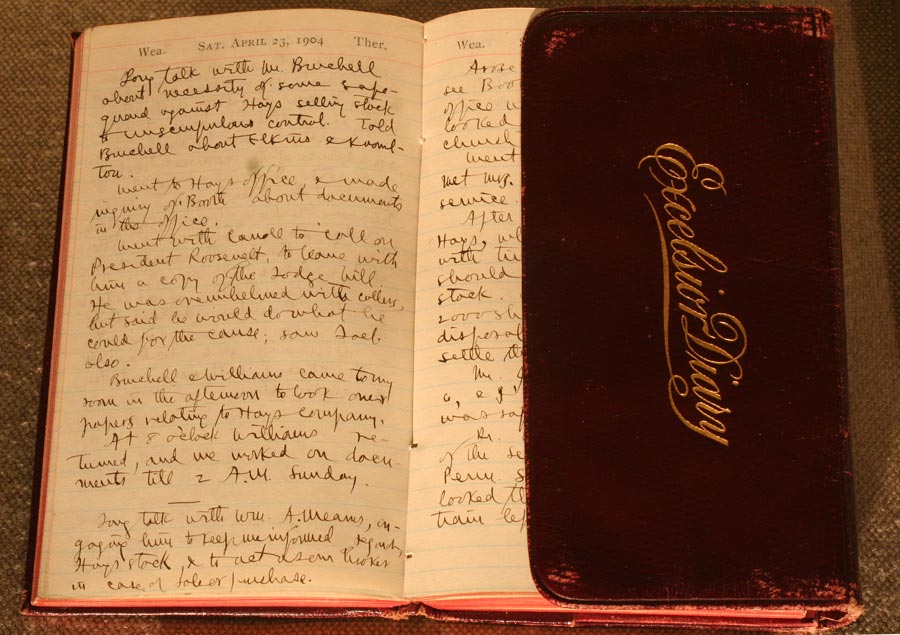 Wea. SAT. APRIL 23, 1904 Ther.
Long talk with Mr. Burchell
about necessity of some safe-
guard against Hays selling stock
to unscrupulous control. Told
Burchell about Elkins &
ton.
Went to Hays office & made
inquiry of Booth about documents
in the office.
Went with to call on
President Roosevelt, to leave with
him a copy of the Lodge bill.
He was overwhelmed with callers,
but said he would do what he
could for the cause; saw Loeb
also.
Burchell & Williams came to my
room in the afternoon to look over
papers relating to Hays Company.
At 8 o'clock Williams re-
turned, and we worked on docu-
ments till 2 A.M. Sunday.
Long talk with Wm. A. Mearns, en-
gaging him to keep me informed
Hays stock, & to act as our broker
in case of sale or purchase.
Wea.
Arose
see Boo
office
looked
church
Went
met Mrs.
service.
After
Hays,
with
should
stock.
2000 sh
disposal
settle th
Mr.
was
Dr.
of the se
Penn. S
looked th
train lef
Excelsior Diary